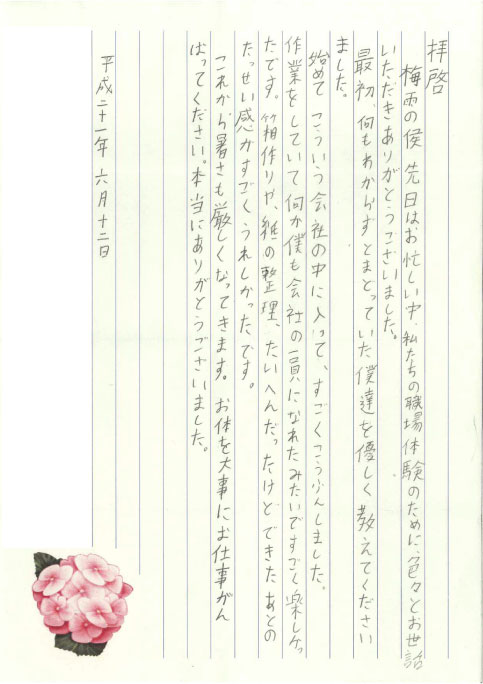 拝啓
梅雨の侯 先日はお忙しい中、私たちの職場体験のために、色々とお世話
いただきありがとうございました。
最初、何もわからずとまどっていた僕達を優しく教えてください
ました。
始めてこういう会社の中に入って、すごくこうふんしました。
作業をしていて何か僕も会社の一員になれたみたいですごく楽しかっ
たです。箱作りや、紙の整理、たいへんだったけどできたあとの
たっせい感がすごくうれしかったです。
これから暑さも厳しくなってきます。お体を大事にお仕事がん
ばってください。本当にありがとうございました。
平成二十一年 六月十二日